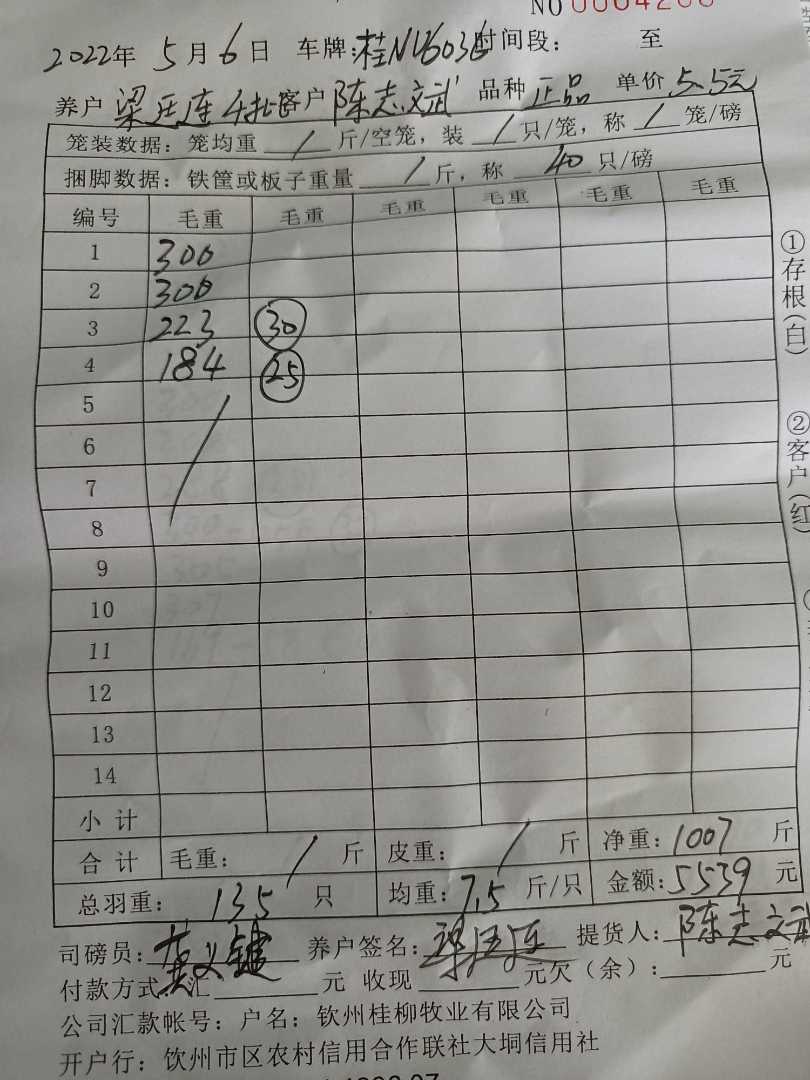 NO 0004206
2022年 5月 6日 车牌:桂NU6036 时间段: 至
养户 梁廷连4批 客户 陈志斌 品种 正品 单价 5.5元
笼装数据: 笼均重 / 斤/空笼, 装 / 只/笼, 称 / 笼/磅
捆脚数据: 铁筐或板子重量 / 斤, 称 40 只/磅
编号 毛重 毛重 毛重 毛重 毛重 毛重
1 300
2 300
3 223 30
4 184 25
5
6
7
8
9
10
11
12
13
14
小计
合计 毛重: / 斤 皮重: / 斤 净重: 1007 斤
总羽重: 135 只 均重: 7.5 斤/只 金额: 5539 元
司磅员: 养户签名: 梁廷连 提货人: 陈志斌
付款方式: 汇 元 收现 元欠(余): 元
公司汇款帐号: 户名: 钦州桂柳牧业有限公司
开户行: 钦州市区农村信用合作联社大垌信用社
①存根(白)
②客户(红)